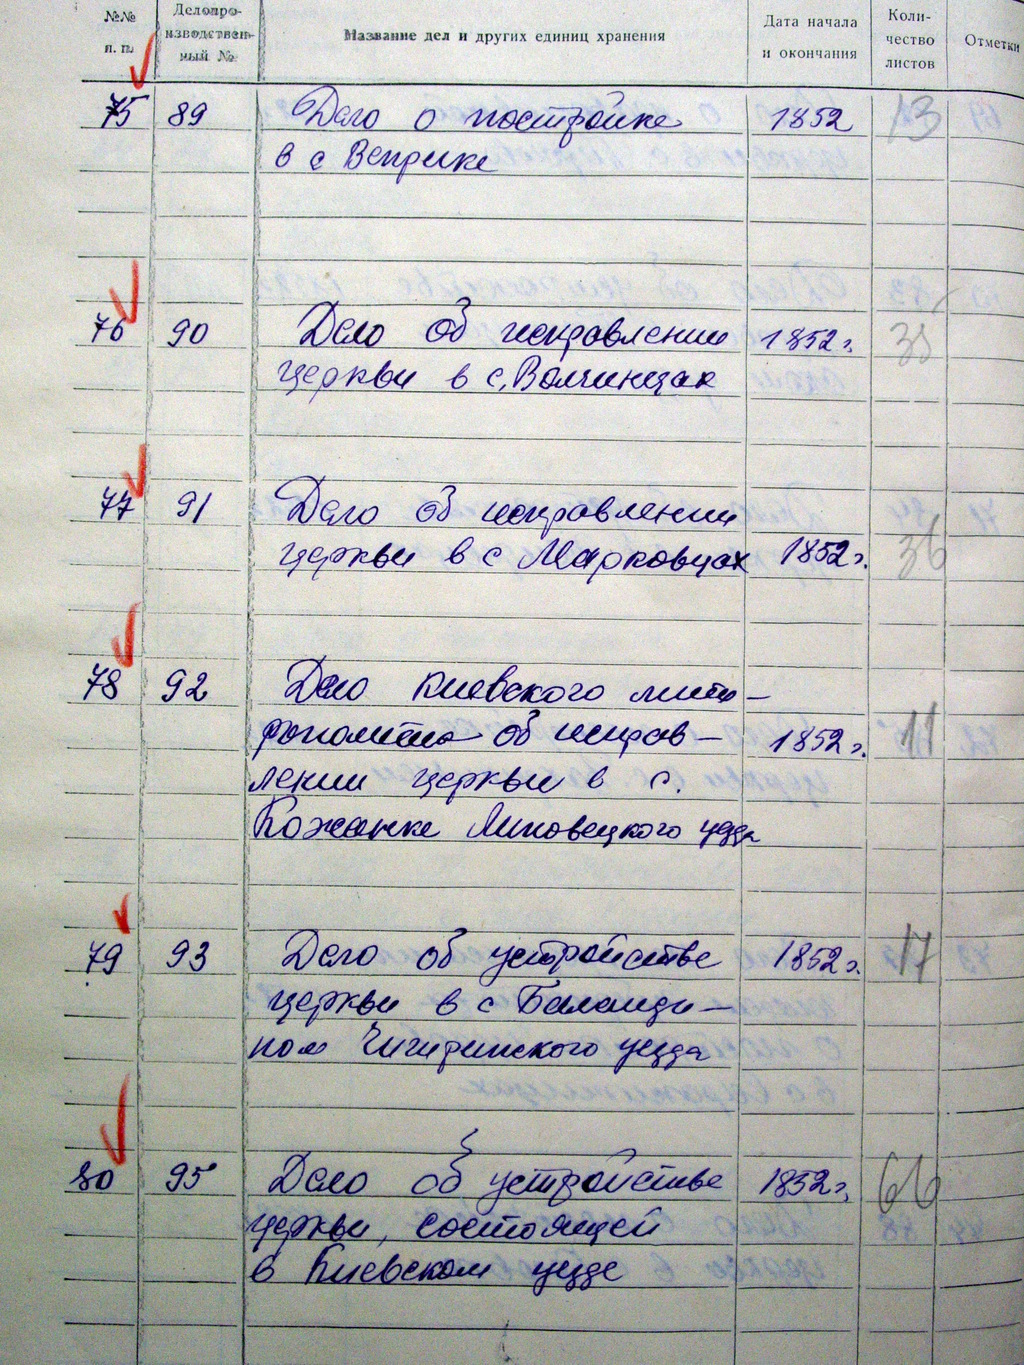 №№ п. п.
Делопро-
изводствен-
ный №
Название дел и других единиц хранения
Дата начала
и окончания
Коли-
чество
листов
Отметки
75 89 Дело о постройке 1852 13
в с Веприке
76 90 Дело об исправлении 1852 г. 35
церкви в с. Волчинцах
77 91 Дело об исправлении
церкви в с Марковцах 1852 г. 36
78 92 Дело Киевского мит-
рополита об исправ- 1852 г. 11
лении церкви в с.
Кожанке Липовецкого уезда
79 93 Дело об устройстве 1852 г. 17
церкви в с Баланди-
ном Чигиринского уезда
80 95 Дело об устройстве 1852 г. 66
церкви, состоящей
в Киевском уезде